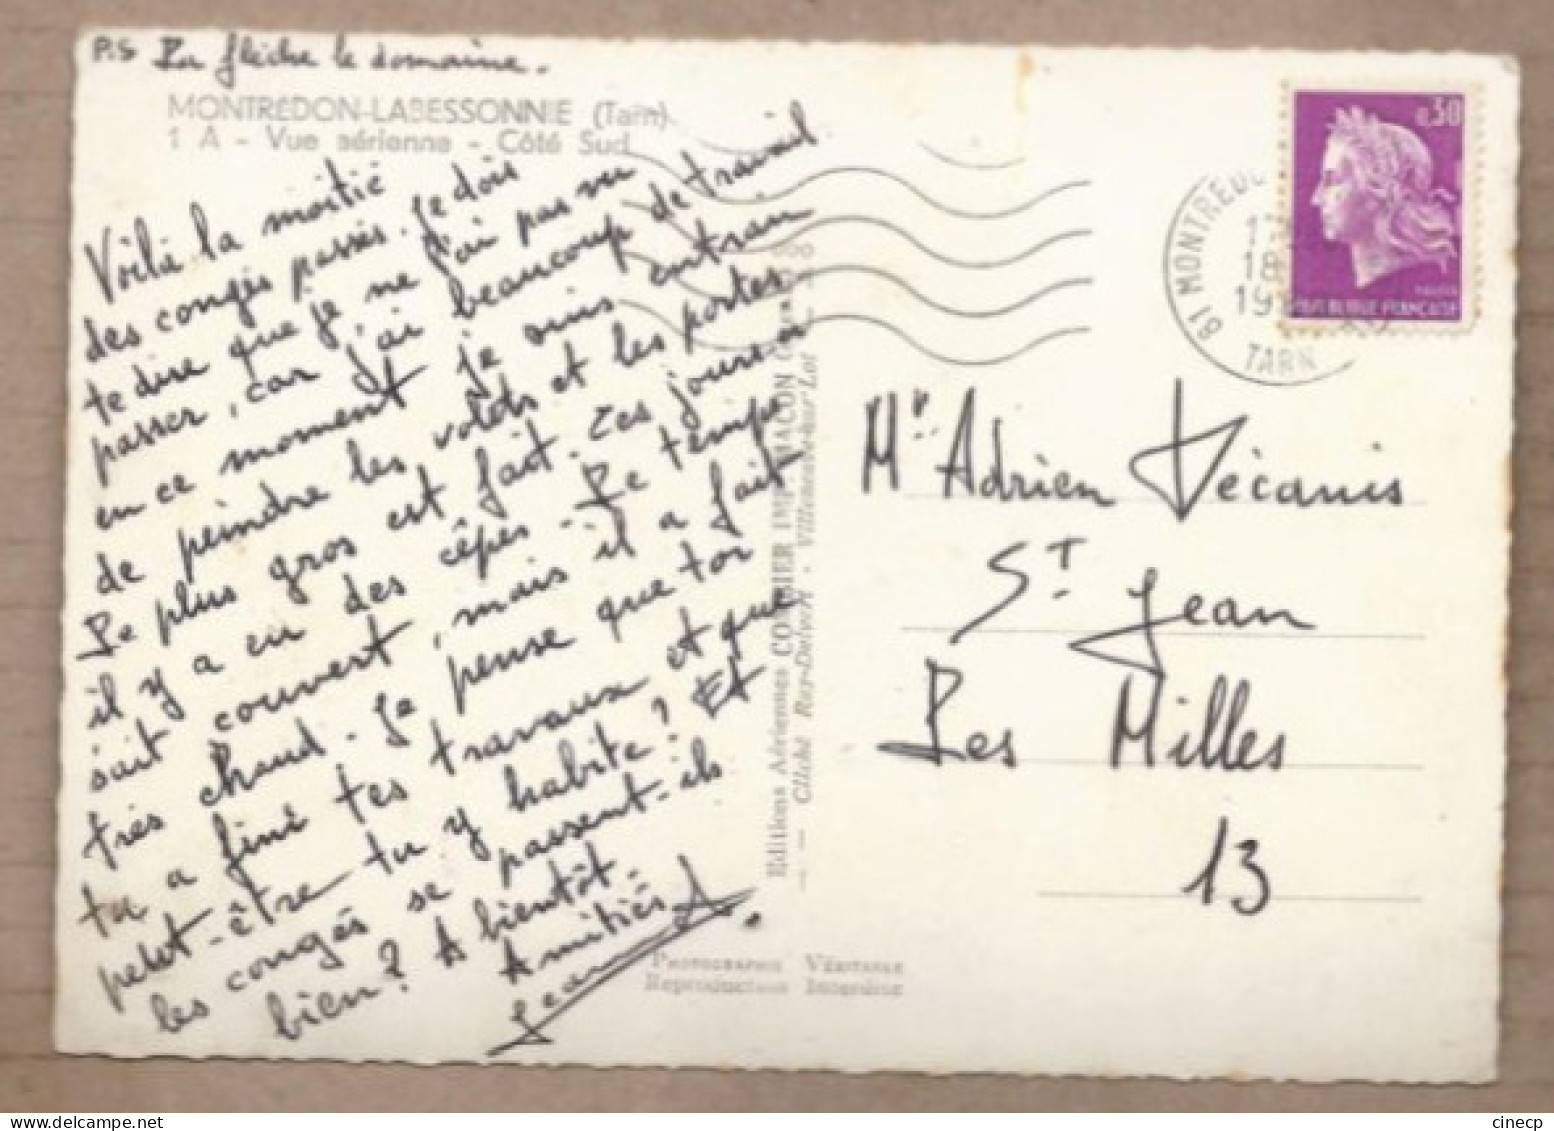 P.S La flèche le domaine.
MONTREDON-LABESSONNIE (Tarn)
1 A - Vue aérienne - Côté Sud
Voilà la moitié
des congés passés. Je dois
te dire que je ne l'ai pas vu
passer, car j'ai beaucoup de travail
en ce moment je suis entrain
de peindre les volets et les portes
Le plus gros est fait. Ces jours-ci
il y a eu des cêpes. Le temps
était couvert, mais il a fait
très chaud. Je pense que toi
tu a finé tes travaux et que
peut-être tu y habite? Et
les congés se passent-ils
bien? A bientôt.
Amitiés
Jean
Editions Aériennes COMBIER IMP. MACON
Cliché Ray-Delvert - Villeneuve-sur-Lot
PHOTOGRAPHIE VÉRITABLE
Reproduction Interdite
0,30
REPUBLIQUE FRANÇAISE
81 MONTREDO
18
19
TARN
Mr Adrien Vécanis
St Jean
Les Milles
13
cinecp